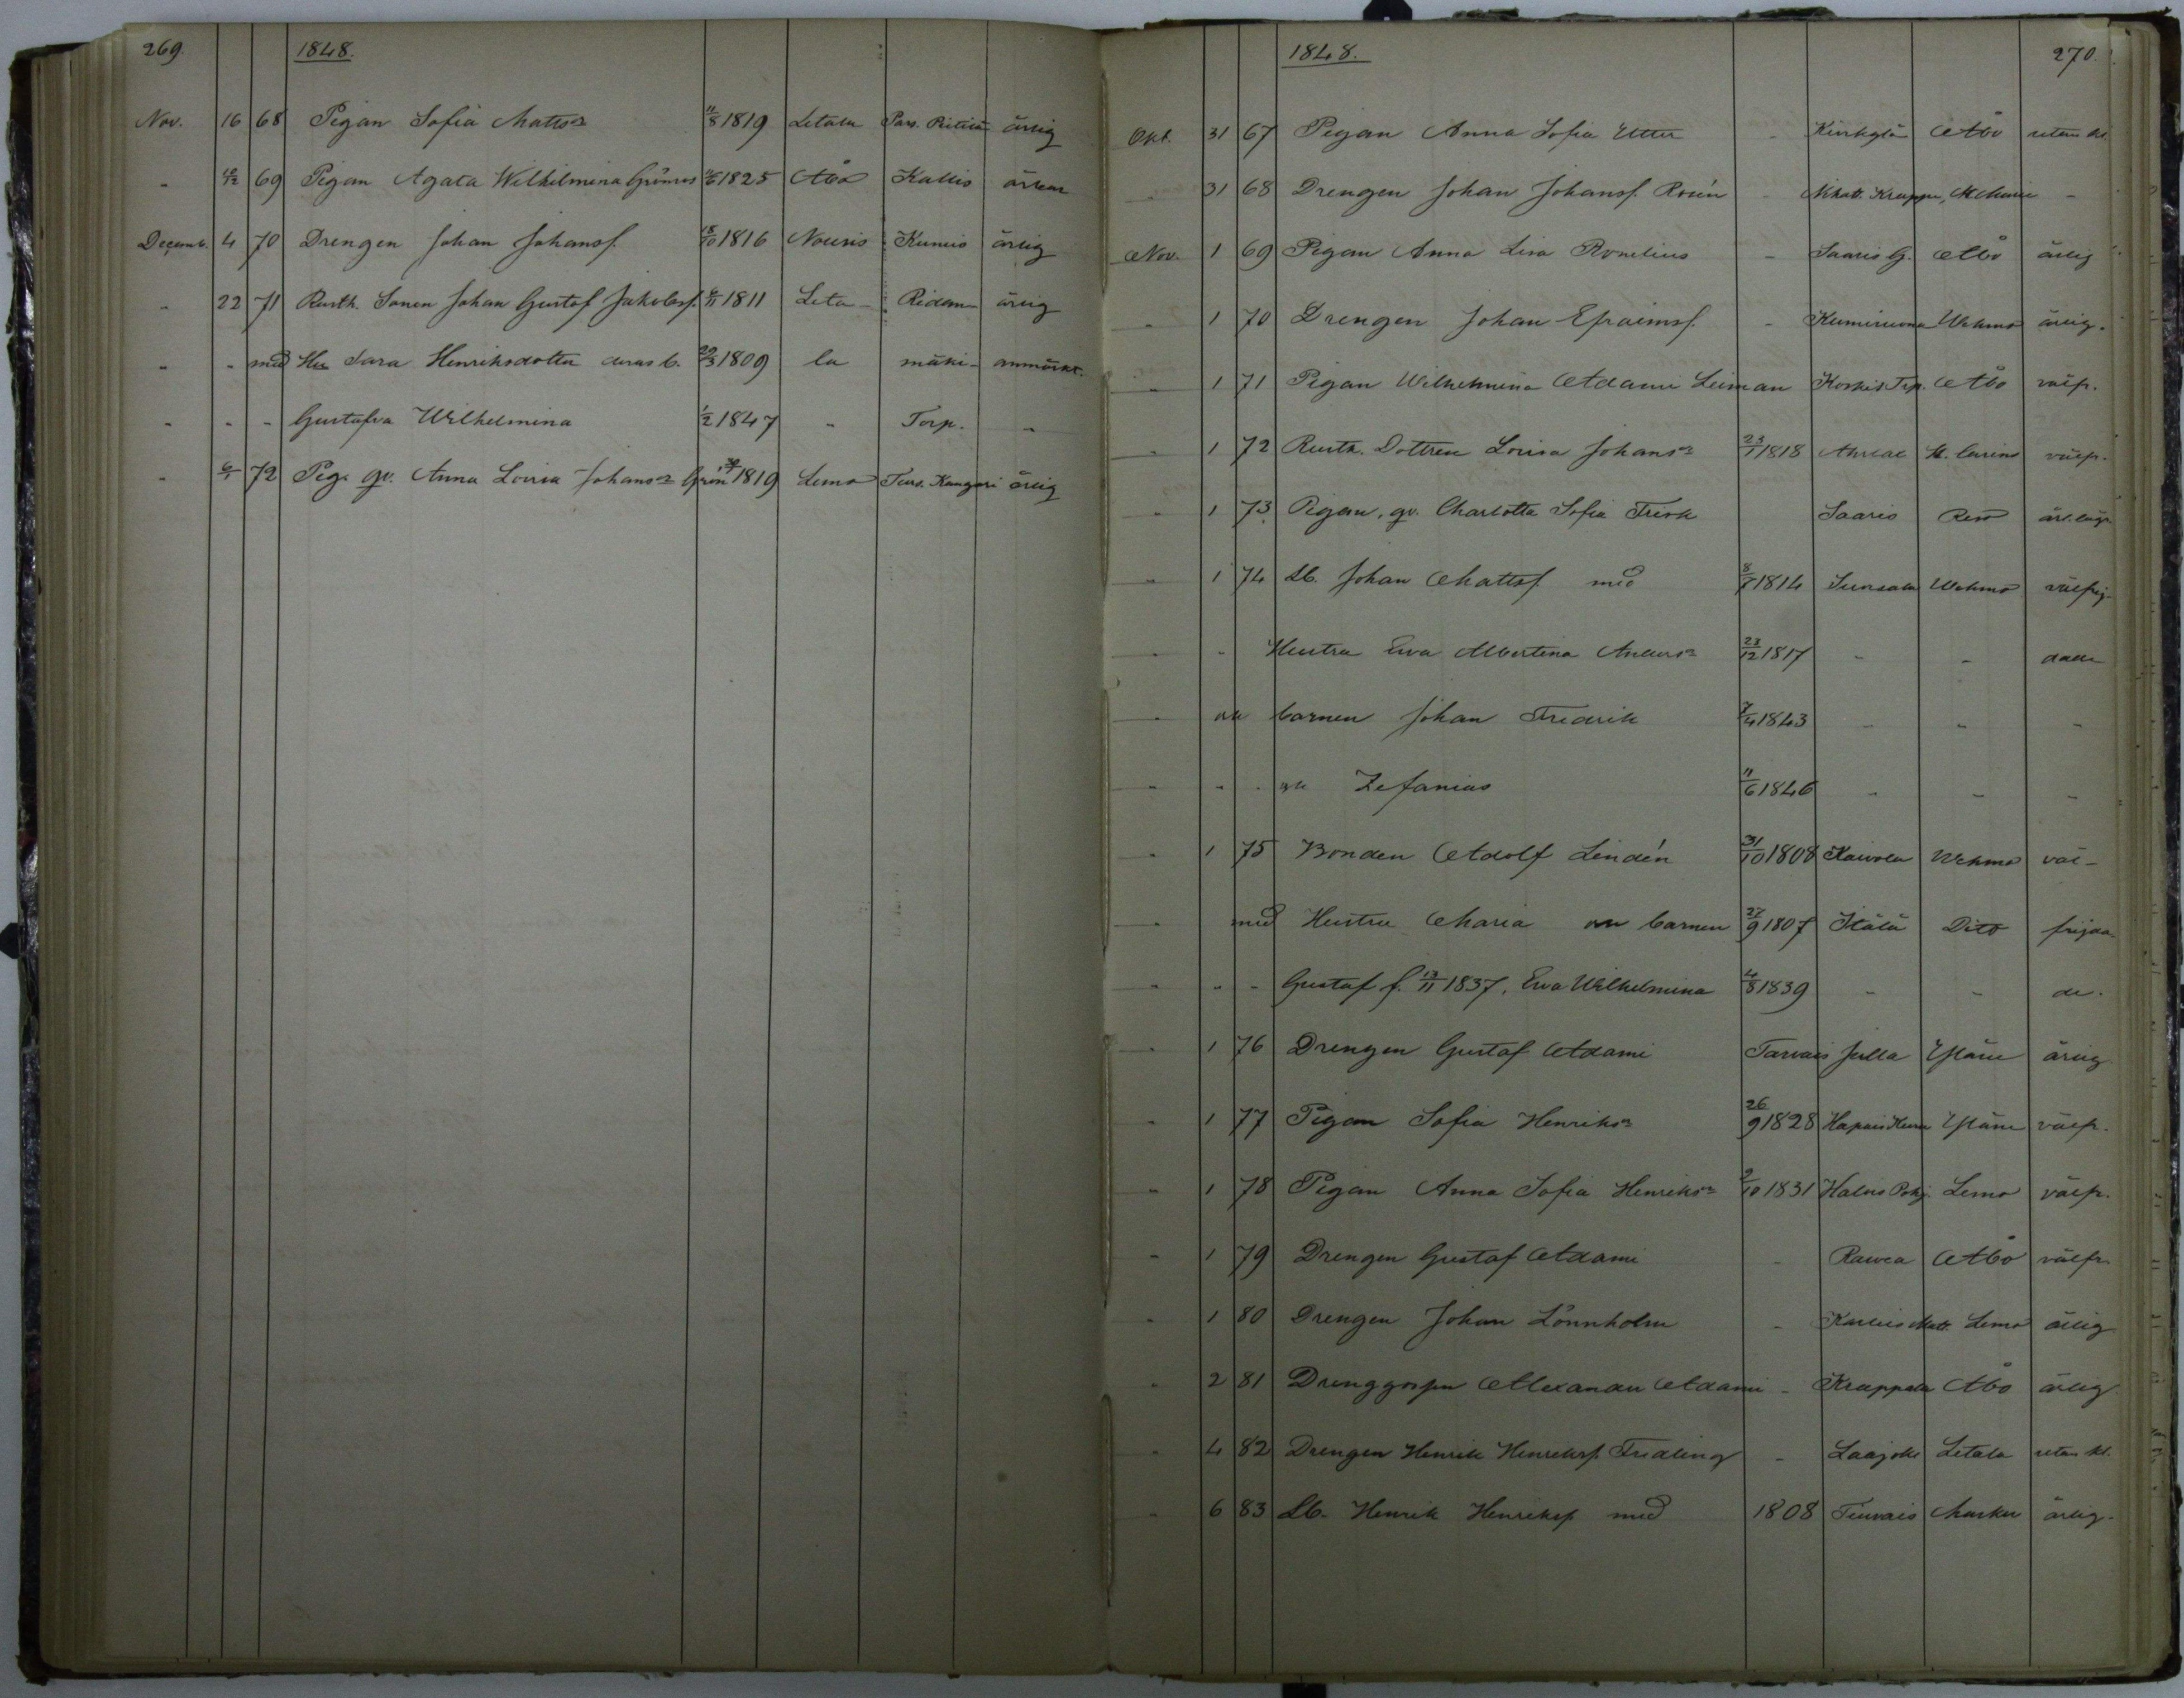 269. 1848.
Nov. 16 68 Pigan Sofia Matts 11/8 1819 Letala Pars. ärlig
" 69 Pigan Agata Wilhelmina Grönroos 1825 Åbo Kallis
Decemb. 4 70 Drengen Johan Johansf. 18/10 1816 Nousis Kumis ärlig
" 22 71 Rusth. Sonen Johan Gustaf Jakobsf. 6/11 1811 Leta- Ridan- ärlig
" " med Hu Sara Henriksdotter deras b. 20/3 1809 la mäki- anmärkt.
" " " Gustafva Wilhelmina 1/2 1847 " Torp. "
" 6/1 72 Pig. qv. Anna Lovisa Johans Grön 1819 Lemo Kangari ärlig
1848. 270.
Okt. 31 67 Pigan Anna Sofia Utter - Kivikylä Åbo utan kl.
" 31 68 Drengen Johan Johansf. Rosén - -
Nov. 1 69 Pigan Anna Lisa Ronelius - Saaris G. Åbo ärlig
" 1 70 Drengen Johan Efraimsf. - Wehmo ärlig.
" 1 71 Pigan Wilhelmina Adami Leiman Koskis Trp. Åbo välf.
" 1 72 Rusth. Dottren Lovisa Johans 23/1 1818 St. Carins välf.
" 1 73 Pigan, qv. Charlotta Sofia Frisk Saaris Reso
" 1 74 Lb. Johan Mattsf. med 8/7 1814 Sunsala Wehmo välfrej-
" " Hustru Eva Albertina Anders 23/12 1817 " " dade
" och barnen Johan Fredrik 7/4 1843 " " "
" " " och Zefanias 11/6 1846 " " "
" 1 75 Bonden Adolf Lindén 31/10 1808 Kaivola Wehmo väl-
" med Hustru Maria och barnen 27/9 1807 Itälä Dito frijda-
" " " Gustaf f. 13/11 1837, Eva Wilhelmina 4/8 1839 " " de.
" 1 76 Drengen Gustaf Adami Tarvais Julla Yläne ärlig
" 1 77 Pigan Sofia Henriks 26/9 1828 Yläne välfr.
" 1 78 Pigan Anna Sofia Henriks 2/10 1831 Halus Pohj. Lemo välfr.
" 1 79 Drengen Gustaf Adami - Åbo välfr.
" 1 80 Drengen Johan Lönnholm - Matt. Lemo ärlig
" 2 81 Drenggossen Alexander Adami - Kruppala Åbo ärlig
" 4 82 Drengen Henrik Henriksf. Fridling - Laajoki Letala utan kl.
" 6 83 Lb. Henrik Henriksf. med 1808 Tiuvais Masku ärlig.